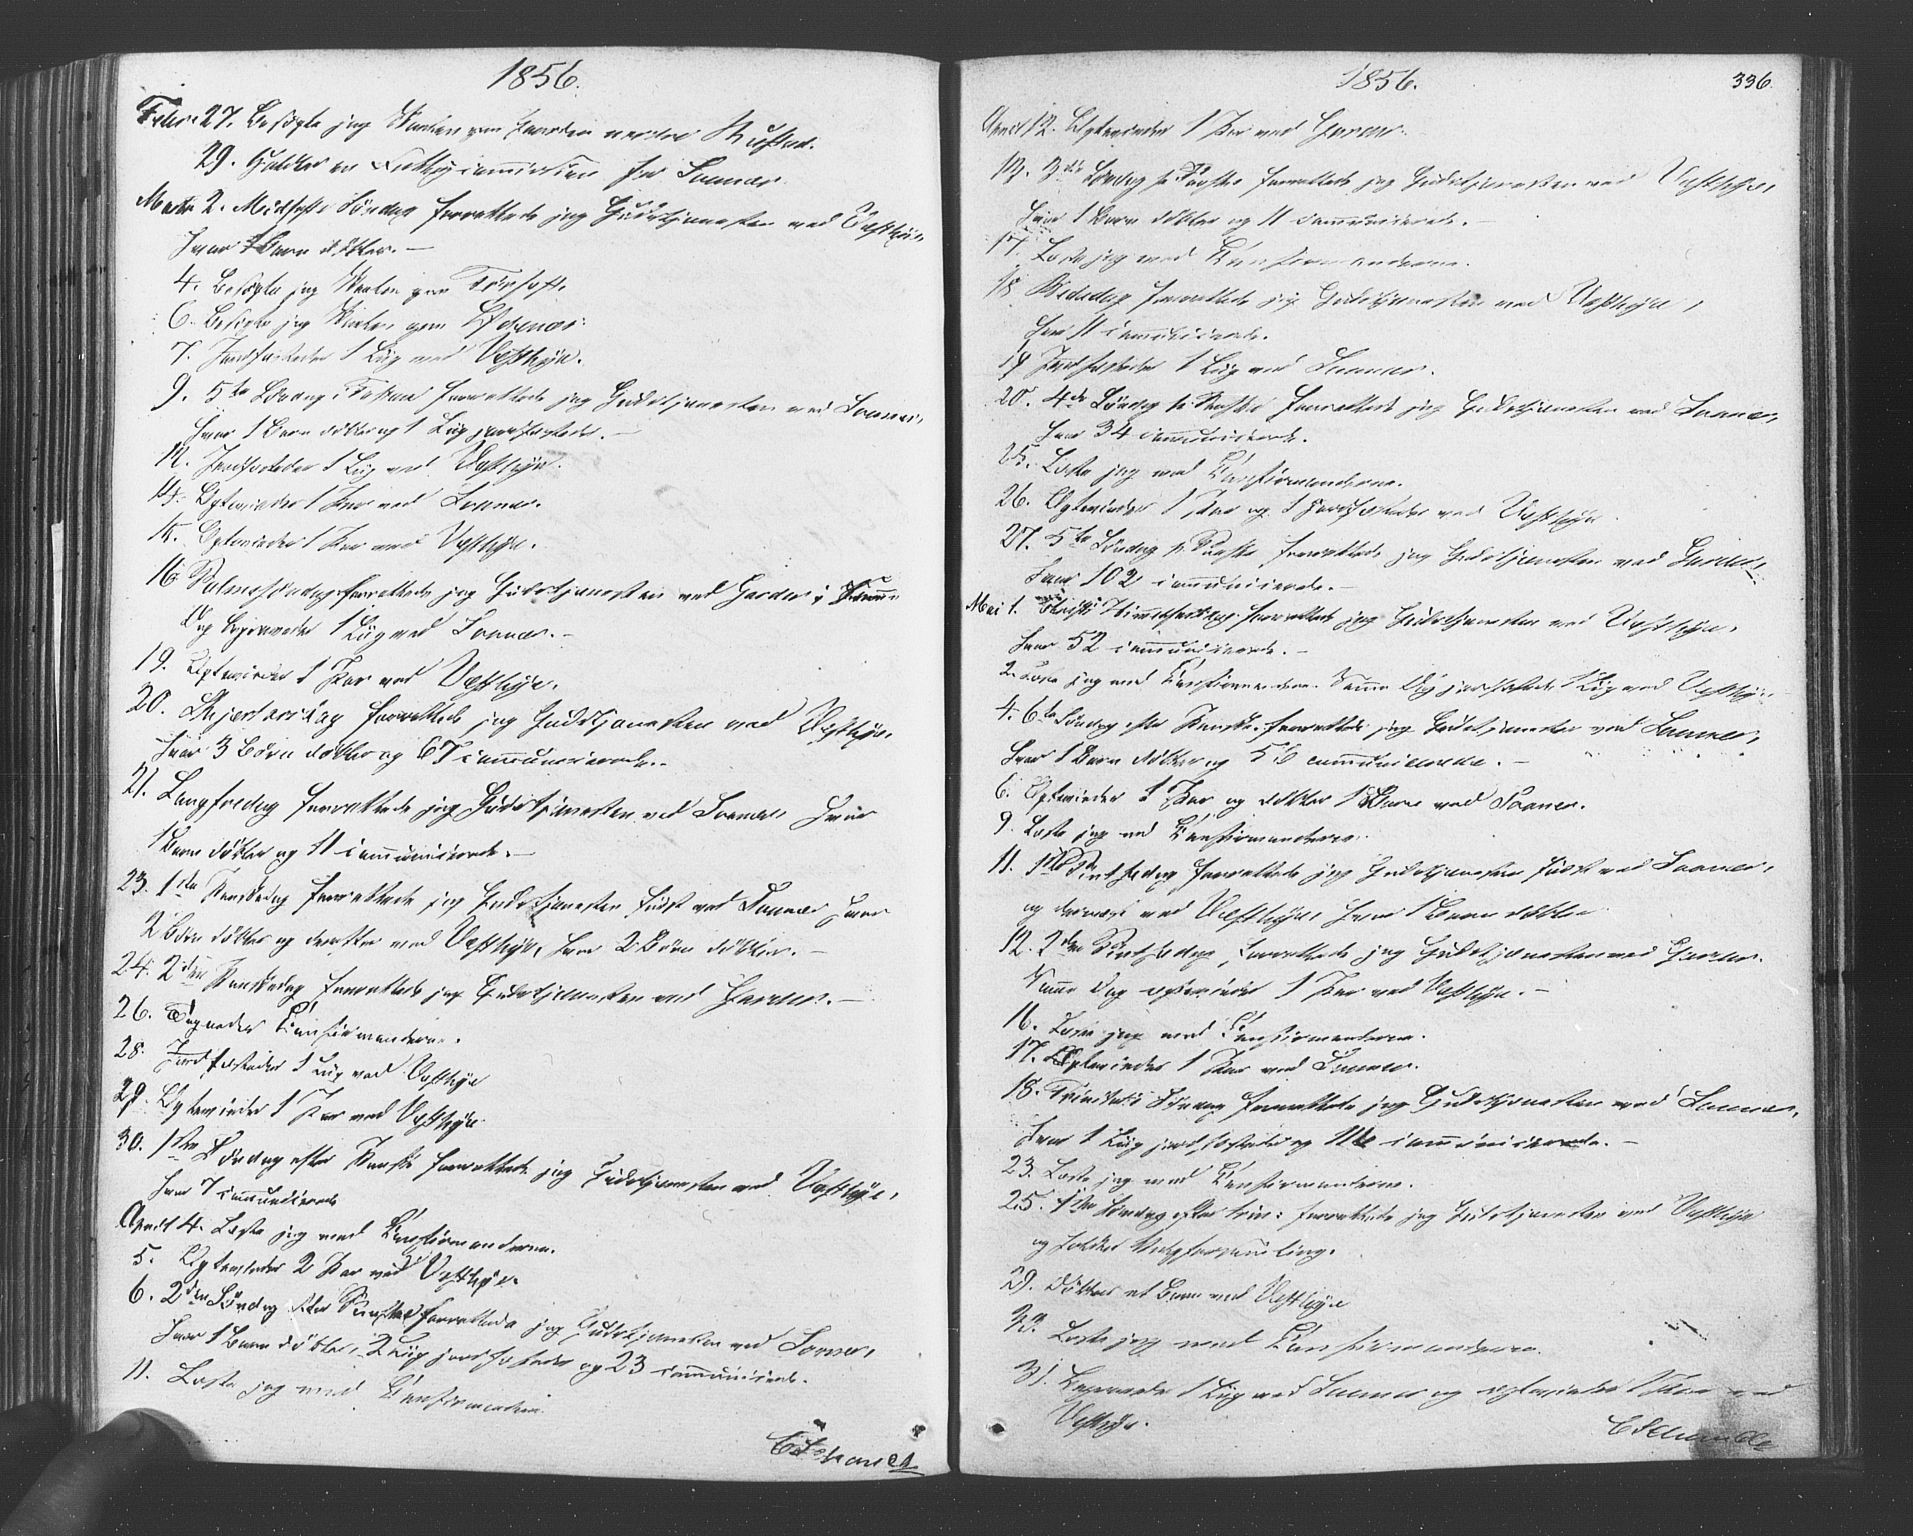 1856.
Febr. 27. Besøgte jeg Skolen paa Gaarden nedre Rustad.
29. Holdtes en Fattigcommission for Sonner.
Marts 2. Midfaste Søndag forrettede jeg Gudstjenesten ved Vestbye,
hvor 1 Barn døbtes. —
4. Besøgte jeg Skolen paa
6. Besøgte jeg Skolen paa
7. Jordfæstedes 1 Liig ved Vestbye.
9. 5te Søndag i Fasten forrettede jeg Gudstjenesten ved Sonner,
hvor 1 Barn døbtes og 1 Liig jordfæstedes. —
12. Jordfæstedes 1 Liig ved Vestbye.
14. Egteviedes 1 Par ved Sonner.
15. Egteviedes 1 Par ved Vestbye.
16. Palmesøndag forrettede jeg Gudstjenesten ved Garder; samme
Dag begravedes 1 Liig ved Sonner. —
19. Egteviedes 1 Par ved Vestbye.
20. Skjertorsdag forrettede jeg Gudstjenesten ved Vestbye,
hvor 3 Børn døbtes og 67 communicerede. -
21. Langfredag forrettede jeg Gudstjenesten ved Sonner, hvor
1 Barn døbtes og 11 communicerede. —
23. 1ste Paaskedag forrettede jeg Gudstjenesten først ved Sonner hvor
2 Børn døbtes og derefter ved Vestbye, hvor 2 Børn døbtes. —
24. 2den Paaskedag forrettede jeg Gudstjenesten ved Garder. —
26. Tegnedes Confirmanderne.
28. Jordfæstedes 1 Liig ved Vestbye
29. Egteviedes 1 Par ved Vestbye.
30. 1ste Søndag efter Paaske forrettede jeg Gudstjenesten ved Vestbye,
hvor 7 communicerede
April 4. Læste jeg med Confirmanderne.
5. Egteviedes 2 Par ved Vestbye.
6. 2den Søndag efter Paaske forrettede jeg Gudstjenesten ved Sonner,
hvor 1 Barn døbtes, 2 Liig jordfæstedes og 23 communicerede.
11. Læste jeg med Confirmanderne.
1856.
336
April 12. Egteviedes 1 Par ved Garder.
13. 3die Søndag p. Paaske forrettede jeg Gudstjenesten ved Vestbye,
hvor 1 Barn døbtes og 11 communicerede. —
17. Læste jeg med Confirmanderne.
18. Bededag forrettede jeg Gudstjenesten ved Vestbye,
hvor 11 communicerede.
19 Jordfæstedes 1 Liig ved Sonner.
20. 4de Søndag p. Paaske forrettede jeg Gudstjenesten ved Sonner,
hvor 34 communicerede.
25. Læste jeg med Confirmanderne.
26. Egteviedes 1 Par og 1 jordfæstedes ved Vestbye.
27. 5te Søndag p. Paaske forrettede jeg Gudstjenesten ved Garder,
hvor 102 communicerede. —
Mai 1. Christi Himmelfartsdag forrettede jeg Gudstjenesten ved Vestbye,
hvor 52 communicerede. —
2. Læste jeg med Confirmanderne. Samme Dag jordfæstedes 1 Liig ved Vestbye.
4. 6te Søndag efter Paaske forrettede jeg Gudstjenesten ved Sonner,
hvor 1 Barn døbtes og 56 communicerede. —
6. Egteviedes 1 Par og døbtes 1 Barn ved Sonner.
9. Læste jeg med Confirmanderne.
11. 1ste Pintsedag forrettede jeg Gudstjenesten først ved Sonner,
og dernæst ved Vestbye, hvor 1 Barn døbtes.
12. 2den Pintsedag forrettede jeg Gudstjenesten ved Garder.
Samme Dag egteviedes 1 Par ved Vestbye. —
16. Læste jeg med Confirmanderne.
17. Egteviedes 1 Par ved Sonner.
18. Trinitatis Søndag forrettede jeg Gudstjenesten ved Sonner,
hvor 1 Liig jordfæstedes og communicerede. —
23. Læste jeg med Confirmanderne.
25. 1ste Søndag efter Trin: forrettede jeg Gudstjenesten ved Vestbye
og holdtes Valgforsamling.
29. Døbtes et Barn ved Vestbye
Læste jeg med Confirmanderne.
31. Begravedes 1 Liig ved Sonner og egteviedes 1 Par ved
Vestbye.